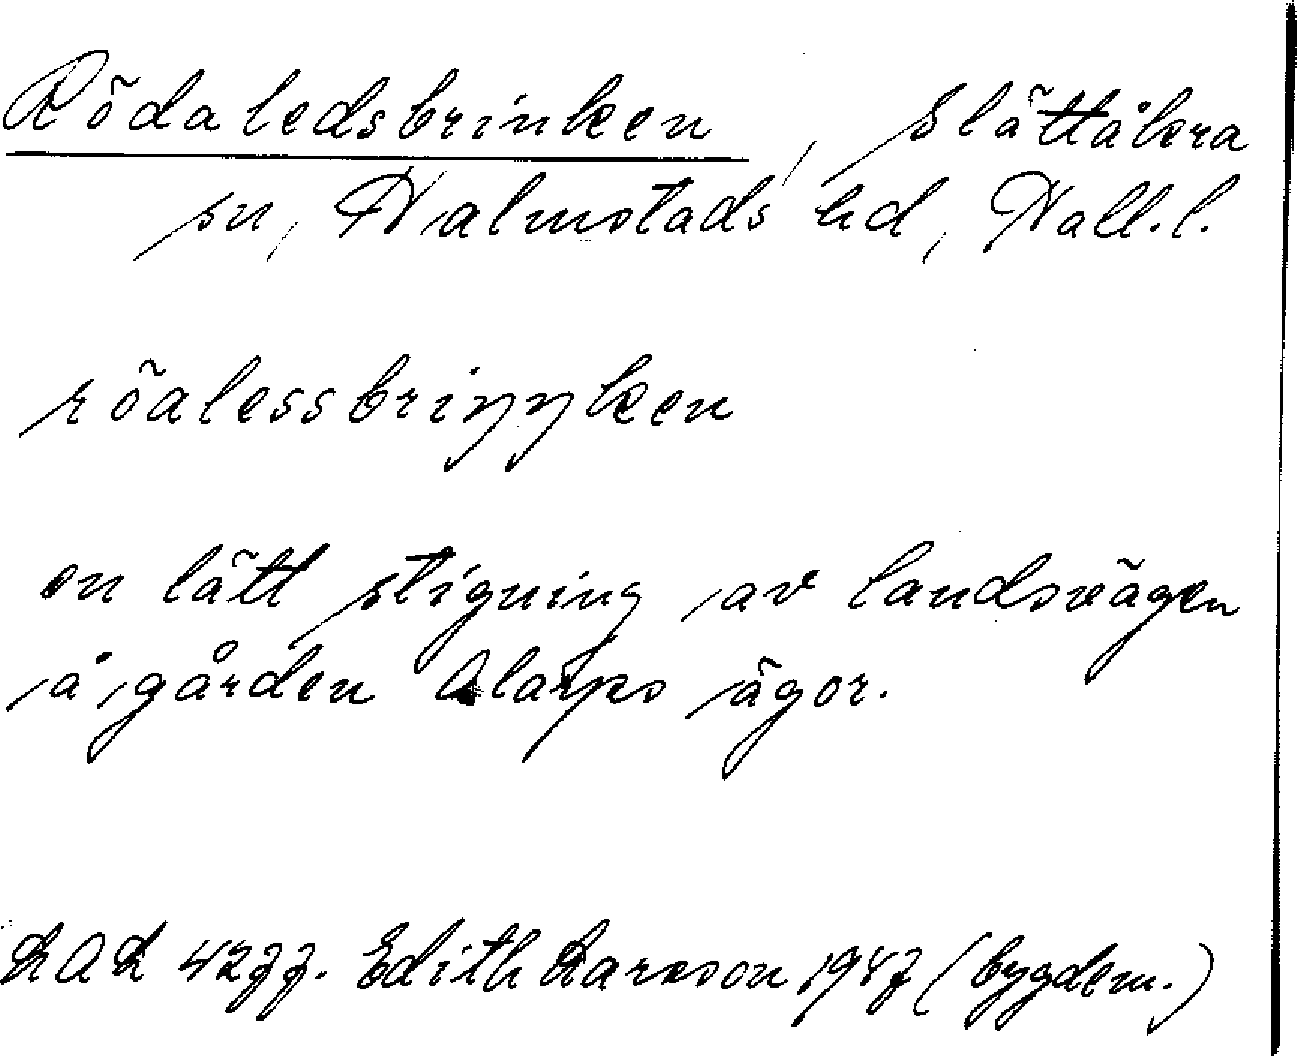 Rödaledsbrinken, Slättåkra
sn, Halmstads hd, Hall.l.
röalessbriŋŋken
en lätt stigning av landsvägen
å gården Alarps ägor.
LAL 4277. Edith Larsson 1947 (bygdem.)